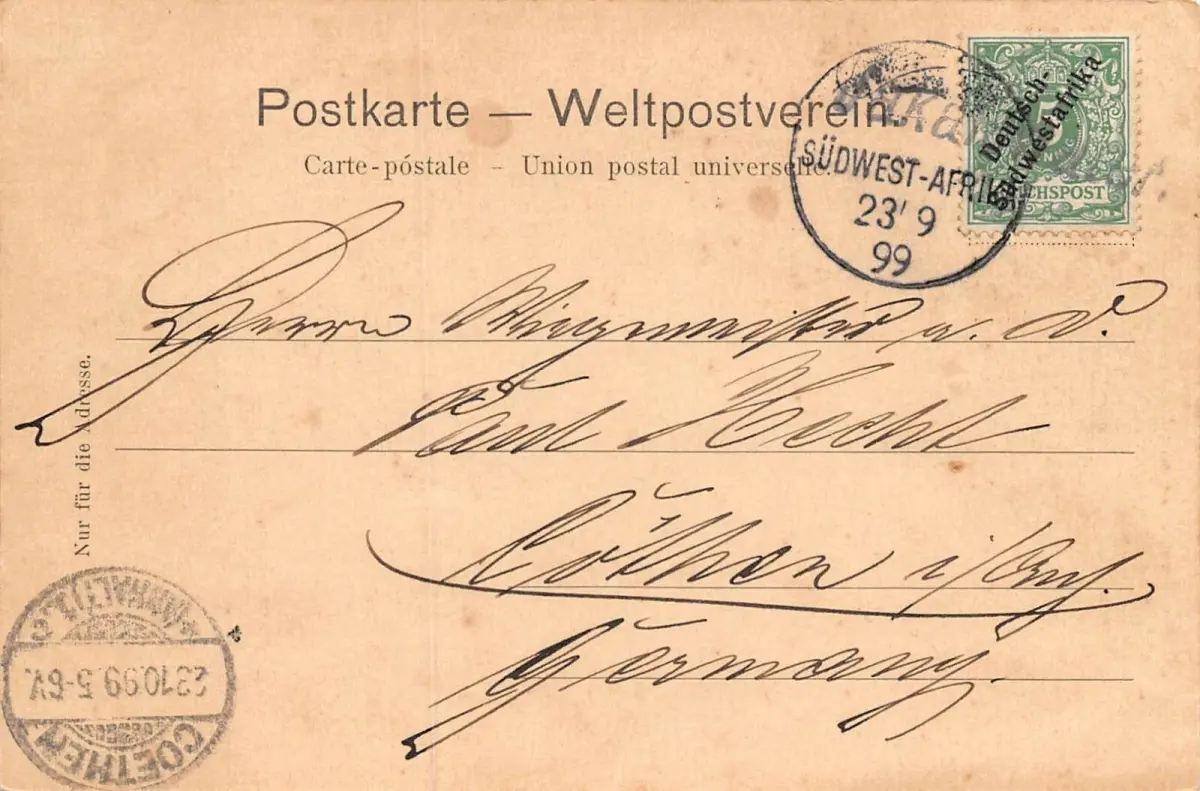 Postkarte — Weltpostverein.
Carte-póstale – Union postal universelle.
SÜDWEST-AFRIKA
23' 9
99
5
Deutsch-
Südwestafrika
REICHSPOST
Herrn a. D.
Paul Hecht
Cöthen i/Anh.
Germany.
Nur für die Adresse.
COETHEN
23.10.99. 5-6V.
* (ANHALT) 1. c